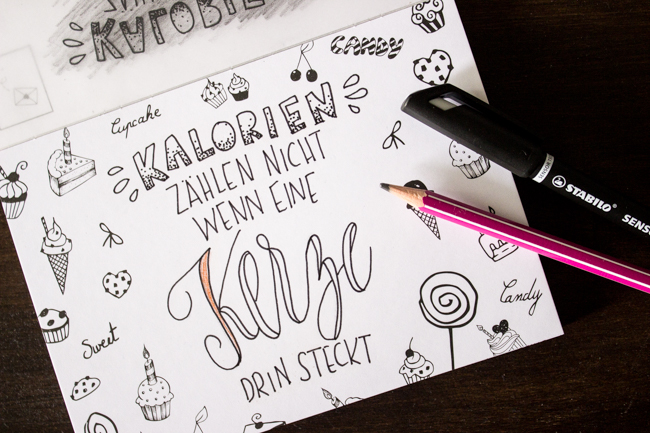 KALORIEN
CANDY
Cupcake
KALORIEN
ZÄHLEN NICHT
WENN EINE
Kerze
DRIN STECKT
Sweet
Candy
STABILO SENS